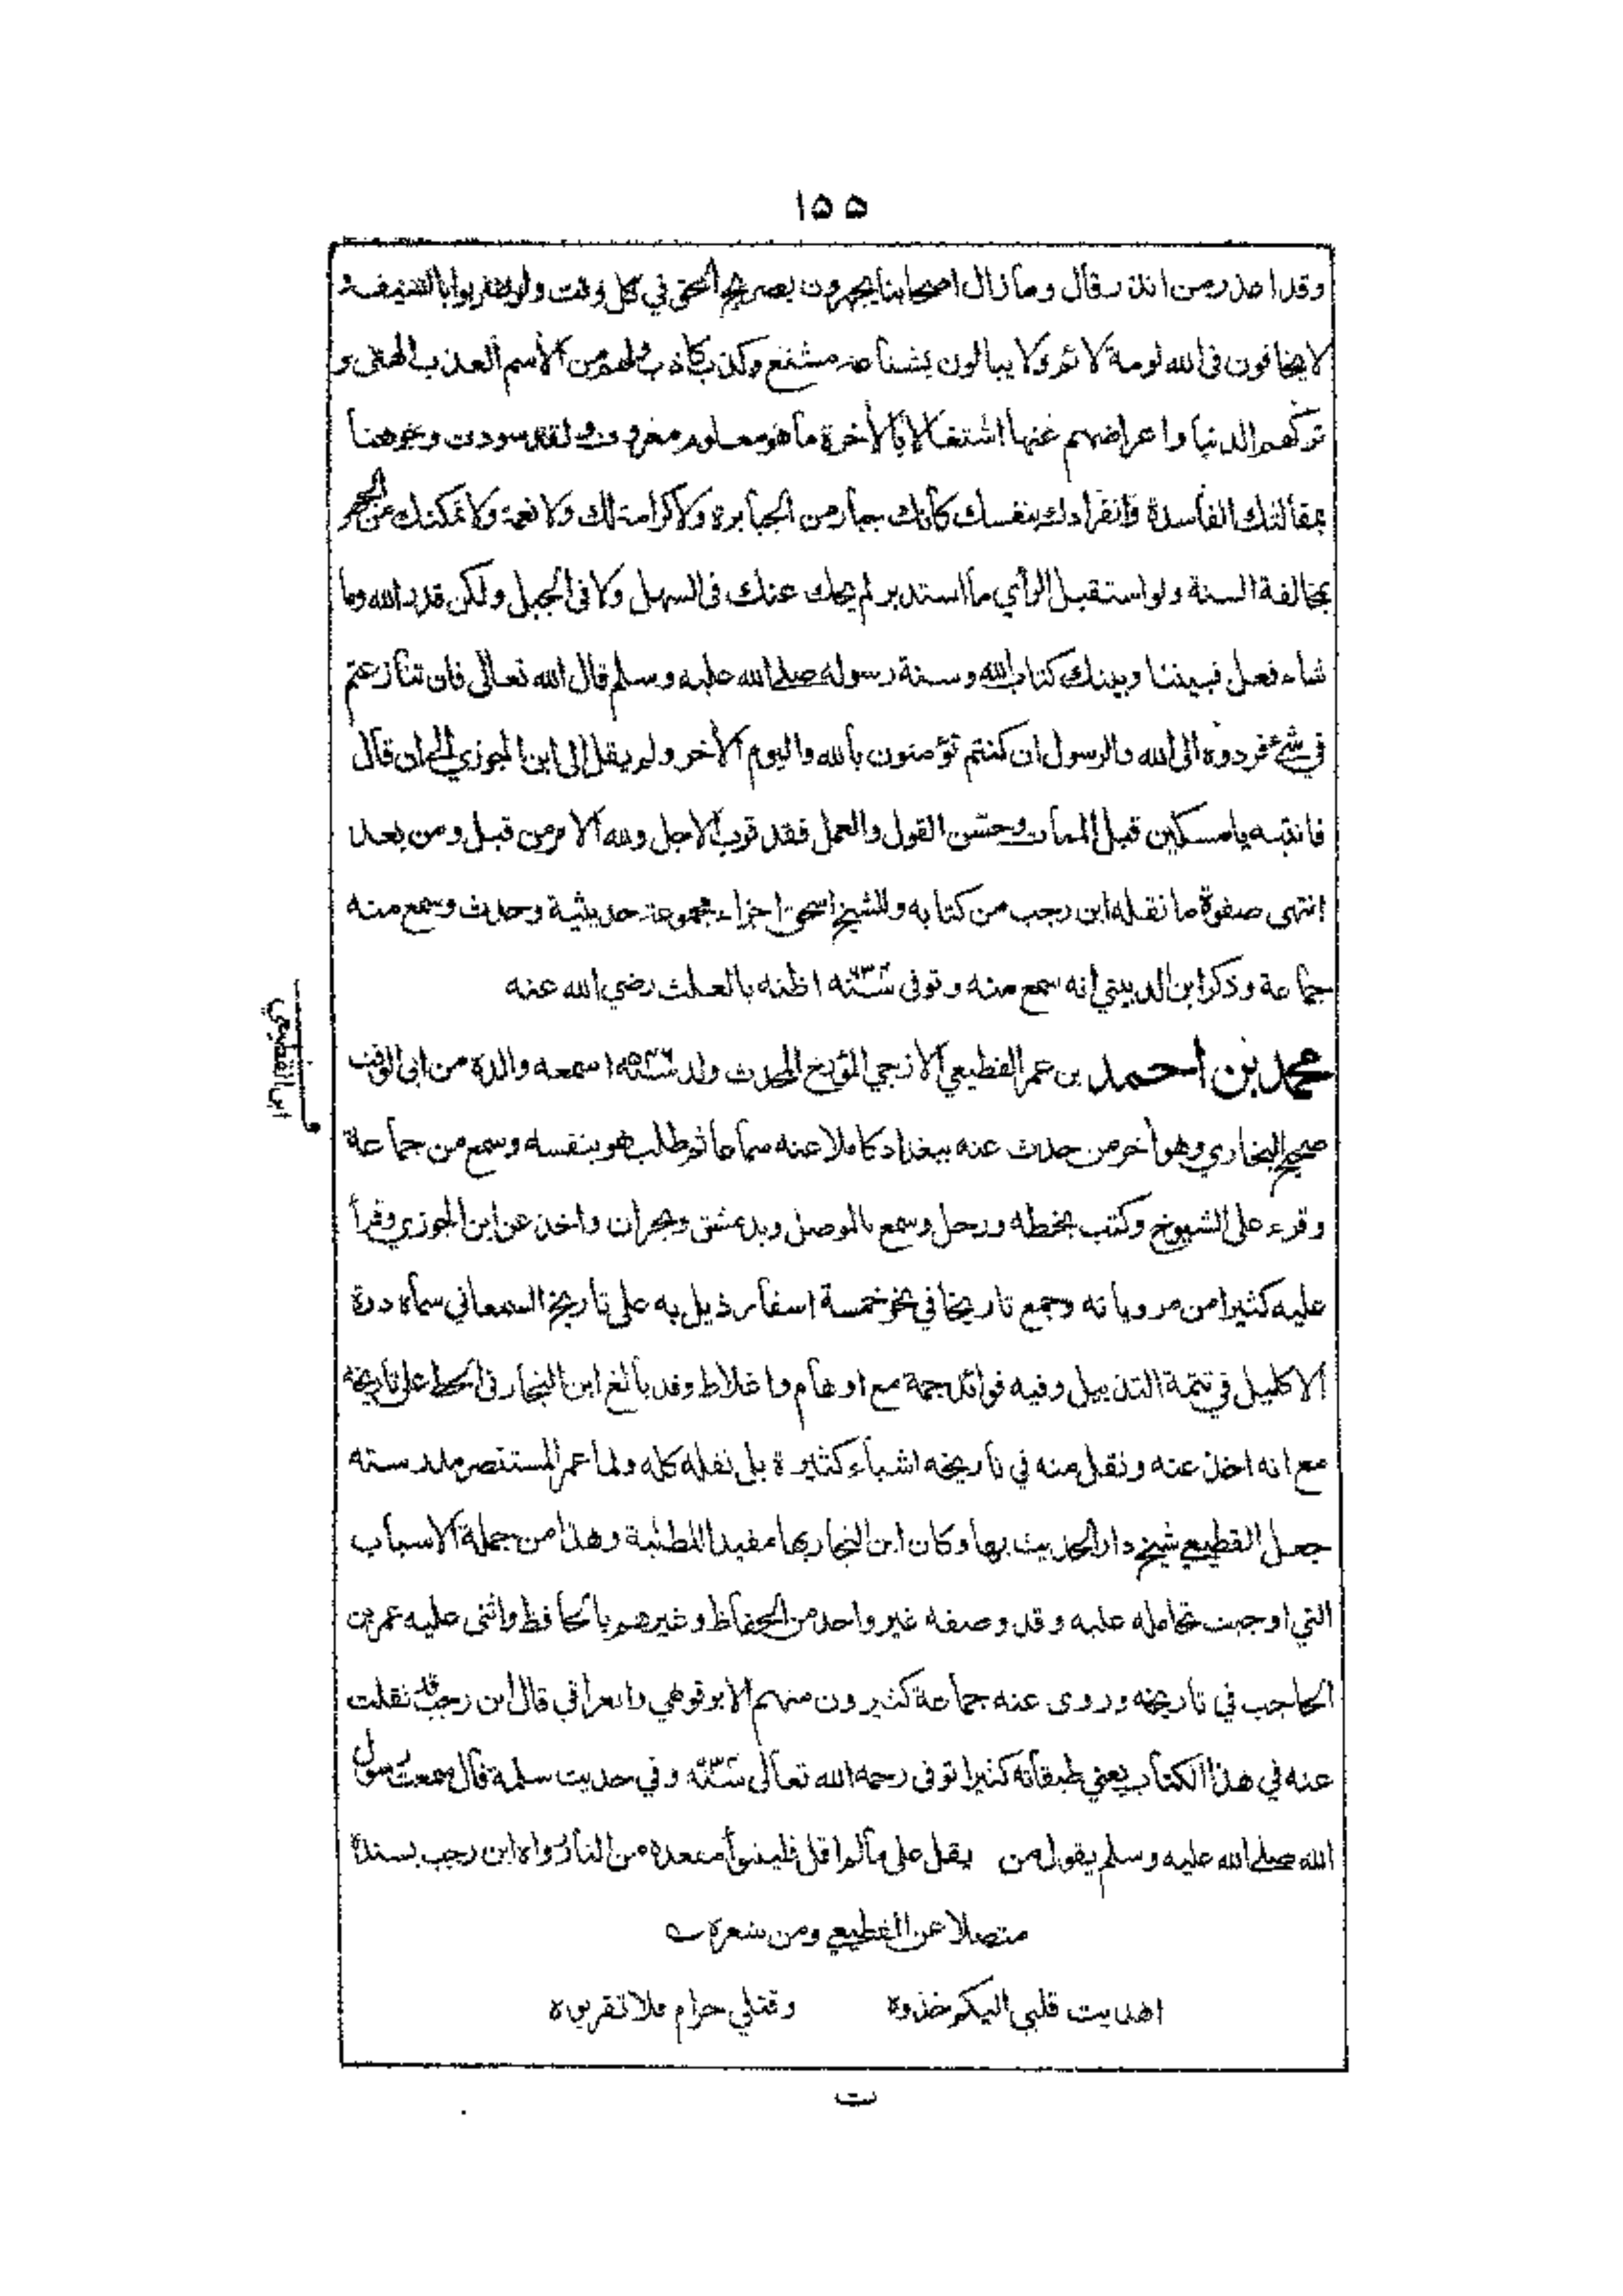 ١٥٥
وقد اعذر من انذر قال وما زال اصحابنا يجهرون بصريح الحق في كل وقت ولو ضربوا بالسيف و
لا يخافون فى الله لومة لائم ولا يبالون بشناعة مشنع وكذب كاذب ولهم من الاسم العذب الهنى و
تركهم الدنيا واعراضهم عنها اشتغالا بالأخرة ما هو معلوم معروف ولقد سودت وجوهنا
بمقالتك الفاسدة وانفرادك بنفسك كأنك جبار من الجبابرة ولا كرامة لك ولا نعمة ولا نمكنك من الجهر
بمخالفة السنة ولو استقبل الرأي ما استدبر لم يحك عنك فى السهل ولا فى الجبل ولكن قدر الله وما
شاء فعل فبيننا وبينك كتاب الله وسنة رسوله صلى الله عليه وسلم قال الله تعالى فان تنازعتم
في شئ فردوه الى الله والرسول ان كنتم تؤمنون بالله واليوم الأخر ولم يقل الى ابن الجوزي الى ان قال
فانتبه يا مسكين قبل الممات وحسّن القول والعمل فقد قرب الاجل ولله الامر من قبل ومن بعد
انتهى صفوة ما نقله ابن رجب من كتابه وللشيخ اسحق اجزاء مجموعة حديثية وحدث وسمع منه
جماعة وذكر ابن الدبيثي انه سمع منه وتوفى سنة ٦٣٤ اظنه بالعلث رضي الله عنه
ابن القطيعي
محمد بن احمد بن عمر القطيعي الازجي المؤرخ المحدث ولد سنة ٥٤٦ اسمعه والده من ابى الوقت
صحيح البخاري وهو أخر من حدث عنه ببغداد كاملا عنه سماعا ثم طلب هو بنفسه وسمع من جماعة
وقرء على الشيوخ وكتب بخطه ورحل وسمع بالموصل وبدمشق وبحران واخذ عن ابن الجوزي وقرأ
عليه كثيرا من مروياته وجمع تاريخا في نحو خمسة اسفار ذيل به على تاريخ السمعاني سماه درة
الاكليل في تتمة التذييل وفيه فوائد جمة مع اوهام واغلاط وقد بالغ ابن النجار فى الحط على تاريخه
مع انه اخذ عنه ونقل منه في تاريخه اشياء كثيرة بل نقله كله ولما عمر المستنصر مدرسته
جعل القطيعي شيخ دار الحديث بها وكان ابن النجار بها مفيدا للطلبة وهذا من جملة الاسباب
التي اوجبت تحامله عليه وقد وصفه غير واحد من الحفاظ وغيرهم بالحافظ واثنى عليه عمر بن
الحاجب في تاريخه وروى عنه جماعة كثيرون منهم الابرقوهي والعراقي قال ابن رجب قد نقلت
عنه في هذا الكتاب يعني طبقاته كثيرا توفى رحمه الله تعالى سنة وفي حديث سلمة قال سمعت رسول
الله صلى الله عليه وسلم يقول من يقل على ما لم اقل فليتبوأ مقعده من النار رواه ابن رجب بسنده
متصلا عن القطيعي ومن شعره
اهديت قلبي اليكم خذوه وقتلي حرام فلا تقربوه
ت